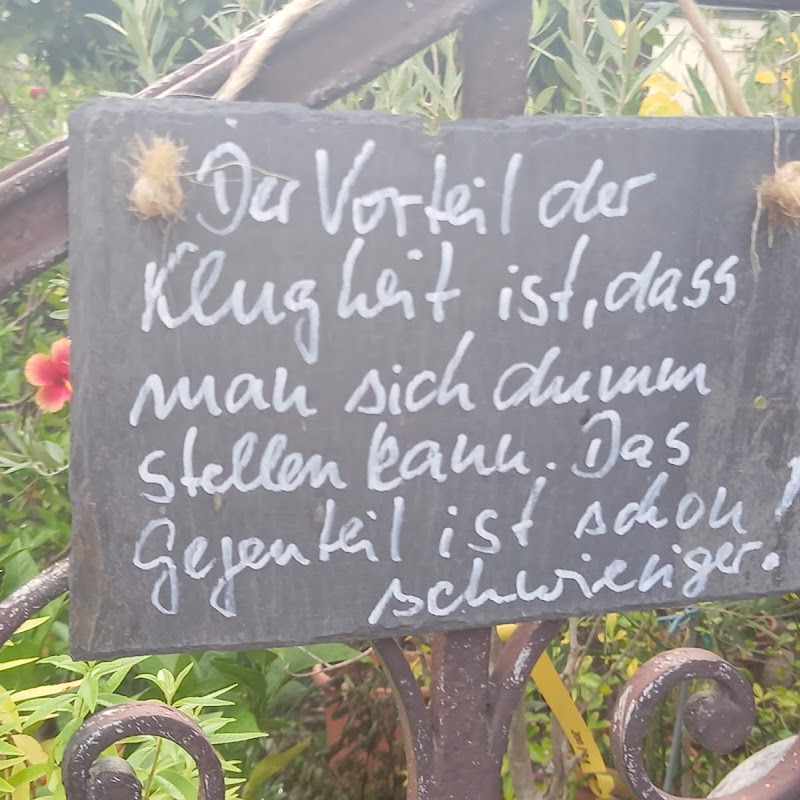 Der Vorteil der
Klugheit ist, dass
man sich dumm
stellen kann. Das
Gegenteil ist schon
schwieriger.